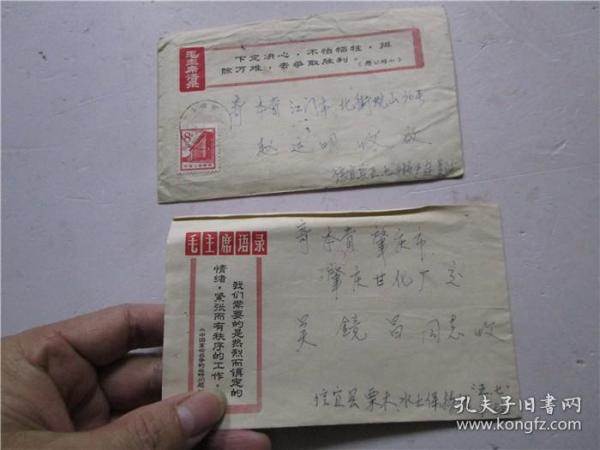 毛主席语录
下定决心，不怕牺牲，排
除万难，去争取胜利。（愚公移山）
8分
寄 本省 江门市 北街
赵 运 明 收
毛主席语录
我们需要的是热烈而镇定的
情绪，紧张而有秩序的工作。
《中国革命战争的战略问题》
寄 本省 肇庆市
肇庆甘化厂交
吴 镜 昌 同志 收
信宜县 栗木水土保
孔夫子旧书网
www.kongfz.com